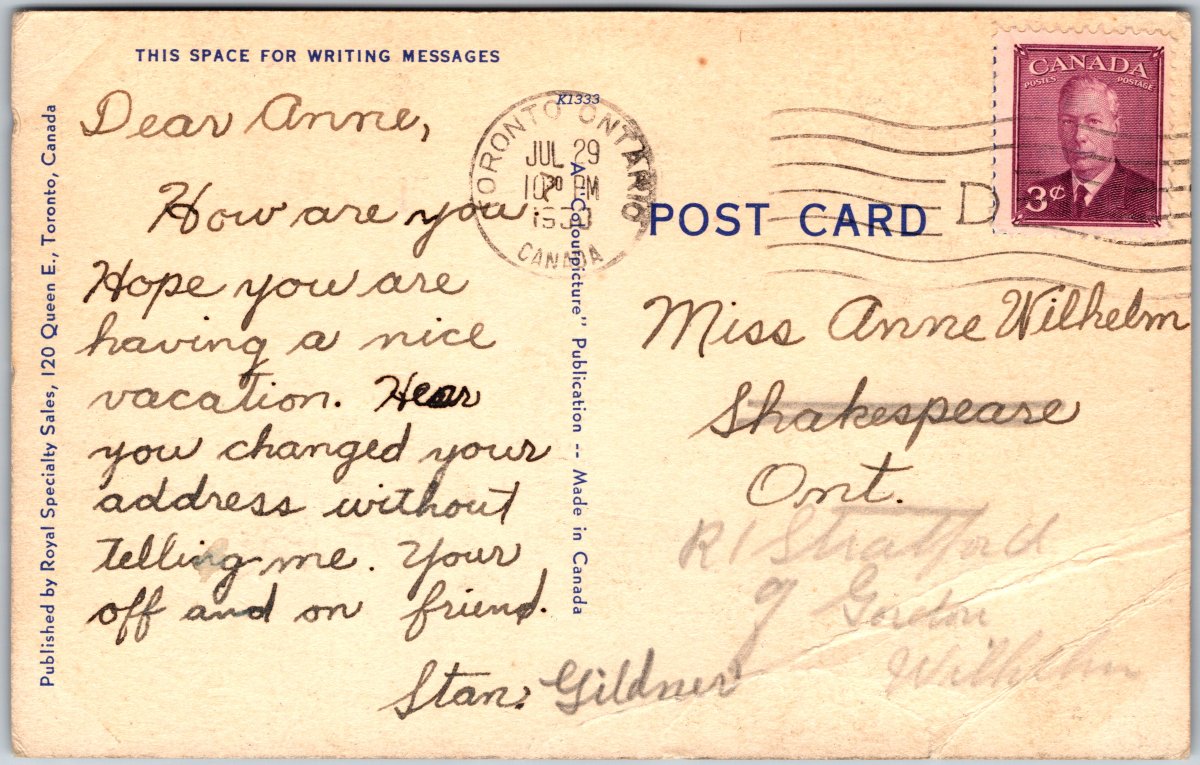 THIS SPACE FOR WRITING MESSAGES
Dear Anne,
How are you
Hope you are
having a nice
vacation. Hear
you changed your
address without
telling me. Your
off and on friend.
Stan. Gildner
Published by Royal Specialty Sales, 120 Queen E., Toronto, Canada
K1333
A "Colourpicture" Publication -- Made in Canada
TORONTO ONTARIO
JUL 29
10 30 PM
CANADA
POST CARD
D
CANADA
POSTES POSTAGE
3¢
Miss Anne Wilhelm
Shakespeare
Ont.
R1 Stratford
Gordon
Wilhelm